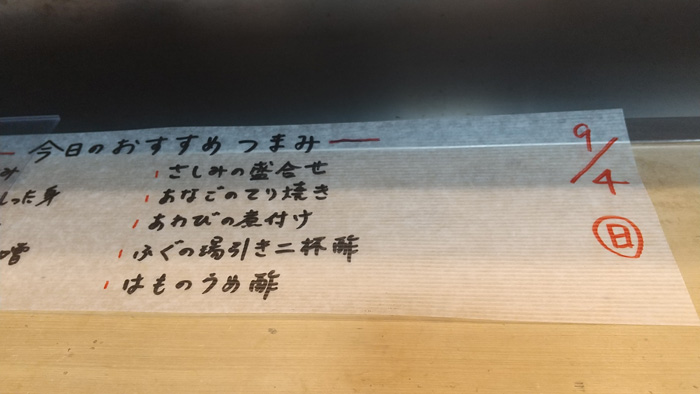 今日のおすすめつまみ
9/4
日
み
さしみの盛合せ
った身
あなごのてり焼き
あわびの煮付け
ふぐの湯引き二杯酢
噌
はものうめ酢